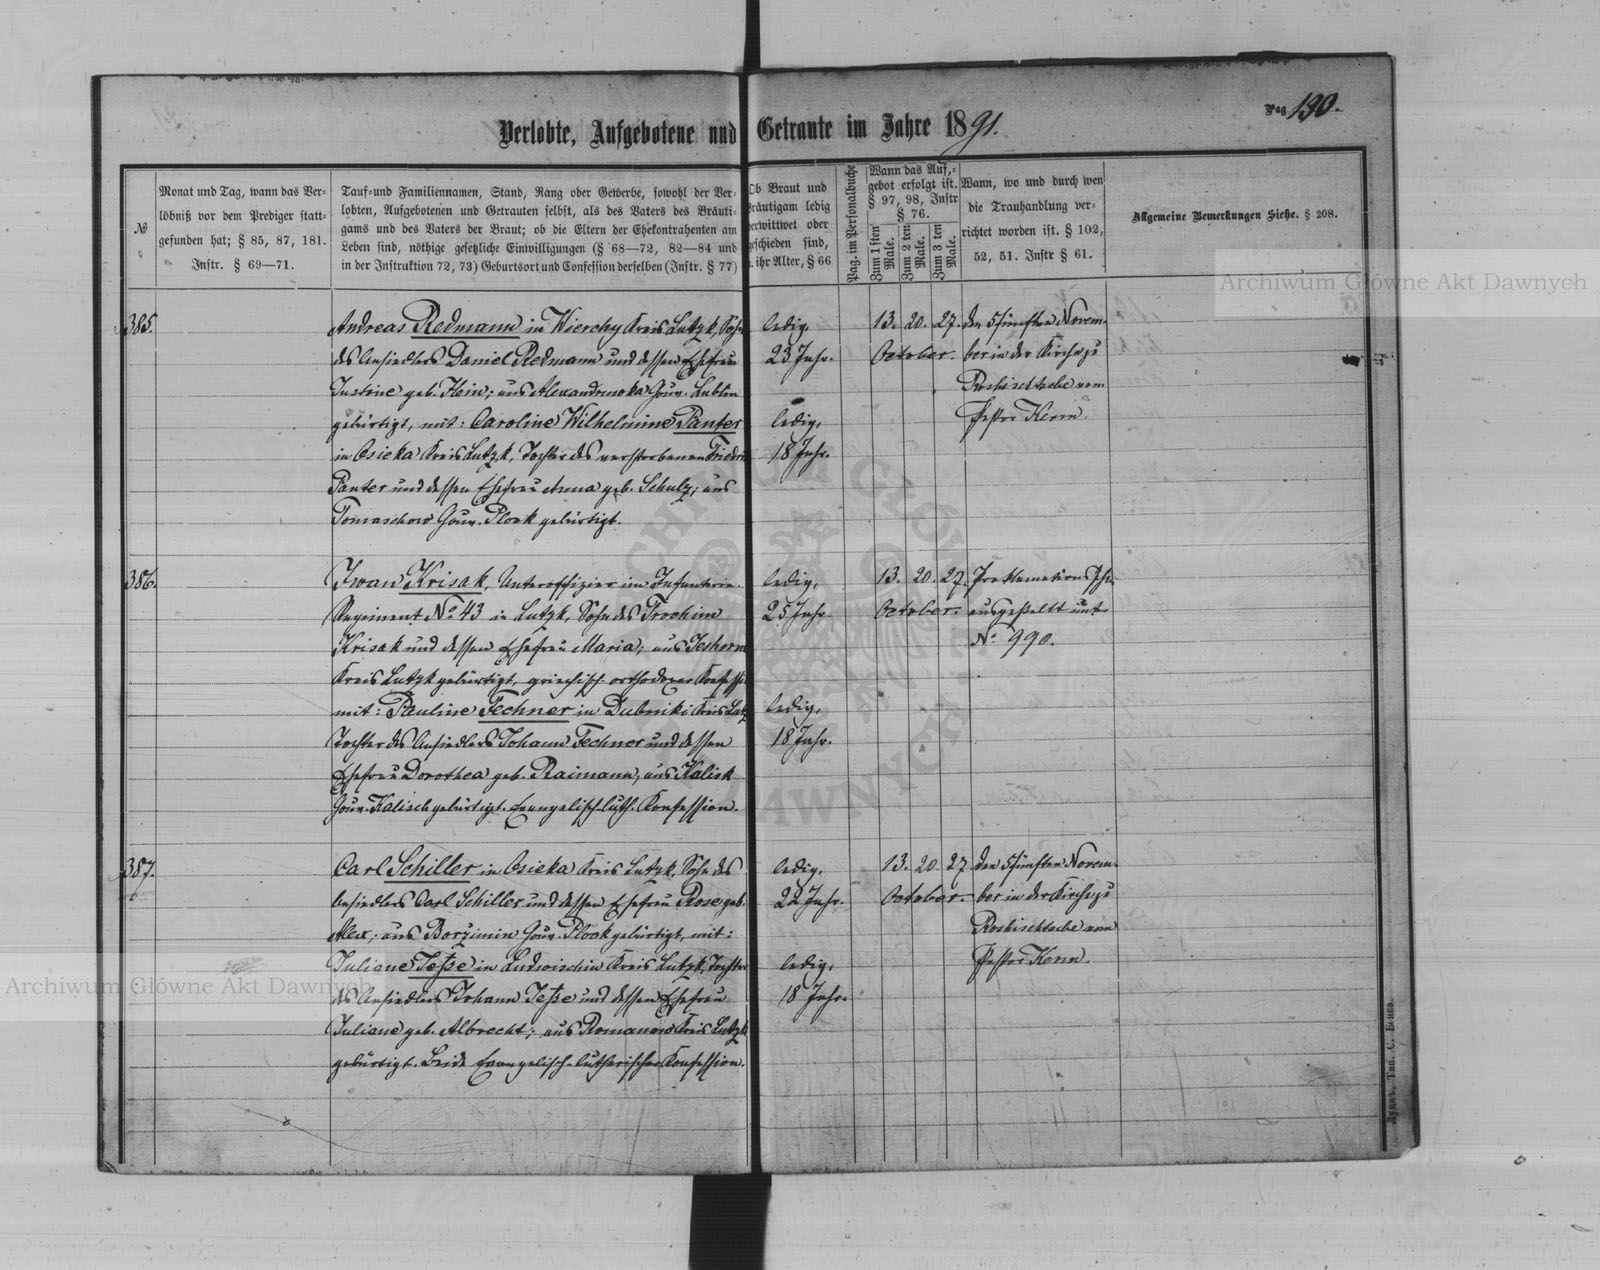 Pag. 190.
Verlobte, Aufgebotene und Getraute im Jahre 1891.
№
Monat und Tag, wann das Ver-
löbniß vor dem Prediger statt-
gefunden hat; § 85, 87, 181.
Instr. § 69—71.
Tauf- und Familiennamen, Stand, Rang oder Gewerbe, sowohl der Ver-
lobten, Aufgebotenen und Getrauten selbst, als des Vaters des Bräuti-
gams und des Vaters der Braut; ob die Eltern der Ehekontrahenten am
Leben sind, nöthige gesetzliche Einwilligungen (§ 68—72, 82—84 und
in der Instruktion 72, 73) Geburtsort und Confession derselben (Instr. § 77)
Ob Braut und
Bräutigam ledig
verwittwet oder
geschieden sind,
u. ihr Alter, § 66
Pag. im Personalbuche
Wann das Auf,-
gebot erfolgt ist.
§ 97, 98, Instr
§ 76.
Zum 1 sten Male.
Zum 2 ten Male.
Zum 3 ten Male.
Wann, wo und durch wen
die Trauhandlung ver-
richtet worden ist. § 102,
52, 51. Instr § 61.
Allgemeine Bemerkungen Siehe. § 208.
Archiwum Główne Akt Dawnych
385.
Andreas Redmann in Wierchy Kreis Lutzk, Sohn
des Ansiedlers Daniel Redmann und dessen Ehefrau
Justine geb. Hein; aus Alexandrowka Gouv. Lublin
gebürtigt, mit: Caroline Wilhelmine Panter
in Osieka Kreis Lutzk, Tochter des verstorbenen Friedri
Panter und dessen Ehefrau Anna geb. Schulz; aus
Tomaschow Gouv. Plozk gebürtigt.
ledig.
23 Jahr.
ledig,
18 Jahr.
13. 20. 27.
October.
den 5 fünften Novem-
ber in der Kirche zu
Roshischtsche vom
Pastor Kerm.
386.
Iwan Krisak, Unteroffizier im Infanterie-
Regiment No 43 in Lutzk, Sohn des Trochim
Krisak und dessen Ehefrau Maria; aus
Kreis Lutzk gebürtigt, griechisch-orthodoxer Konfessi
mit: Pauline Fechner in Dubniki Kreis Lutz
Tochter des Ansiedlers Johann Fechner und dessen
Ehefrau Dorothea geb. Raimann, aus Kalisk
Gouv. Kalisch gebürtigt. Evangelisch-luth. Konfession.
ledig,
25 Jahr.
ledig,
18 Jahr.
13. 20. 27.
October.
Proklamationsschn
ausgestellt unter
No 990.
387.
Carl Schiller in Osieka Kreis Lutzk, Sohn des
Ansiedlers Carl Schiller und dessen Ehefrau Rose geb.
Alex; aus Borzimin Gouv. Plozk gebürtigt, mit:
Juliane Jeße in Ludwischin Kreis Lutzk, Tochter
des Ansiedlers Johann Jeße und dessen Ehefrau
Juliane geb. Albrecht; aus Romanow Kreis Lutzk
gebürtigt. Beide Evangelisch-lutherischer Konfession.
ledig.
22 Jahr.
ledig,
18 Jahr.
13. 20. 27.
October.
den 5 fünften Novem-
ber in der Kirche zu
Roshischtsche vom
Pastor Kerm.
Archiwum Główne Akt Dawnych